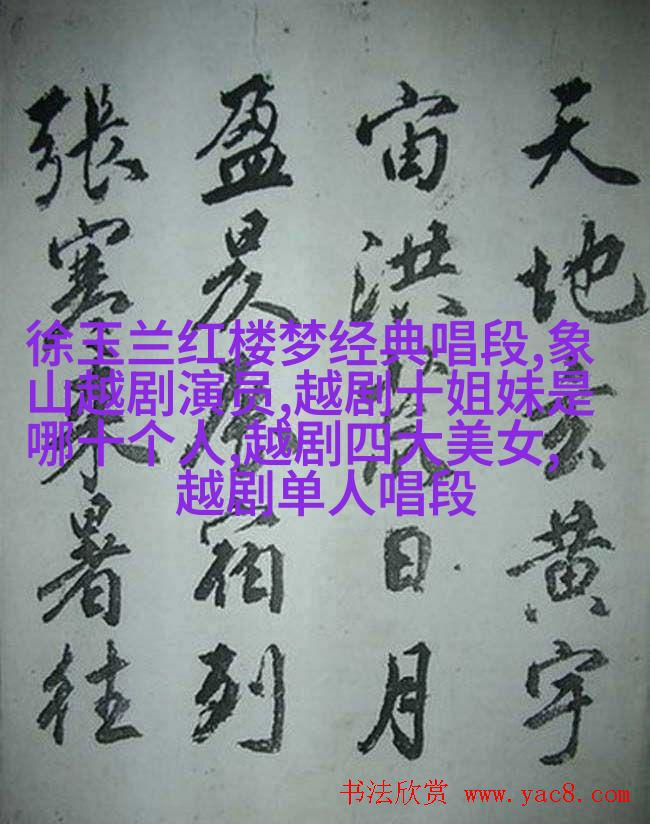 天地玄黄宇
宙洪荒日月
盈昃辰宿列
張寒来暑往
徐玉兰红楼梦经典唱段,象
山越剧演员,越剧十姐妹是
哪十个人,越剧四大美女,
越剧单人唱段
书法欣赏 www.yac8.com